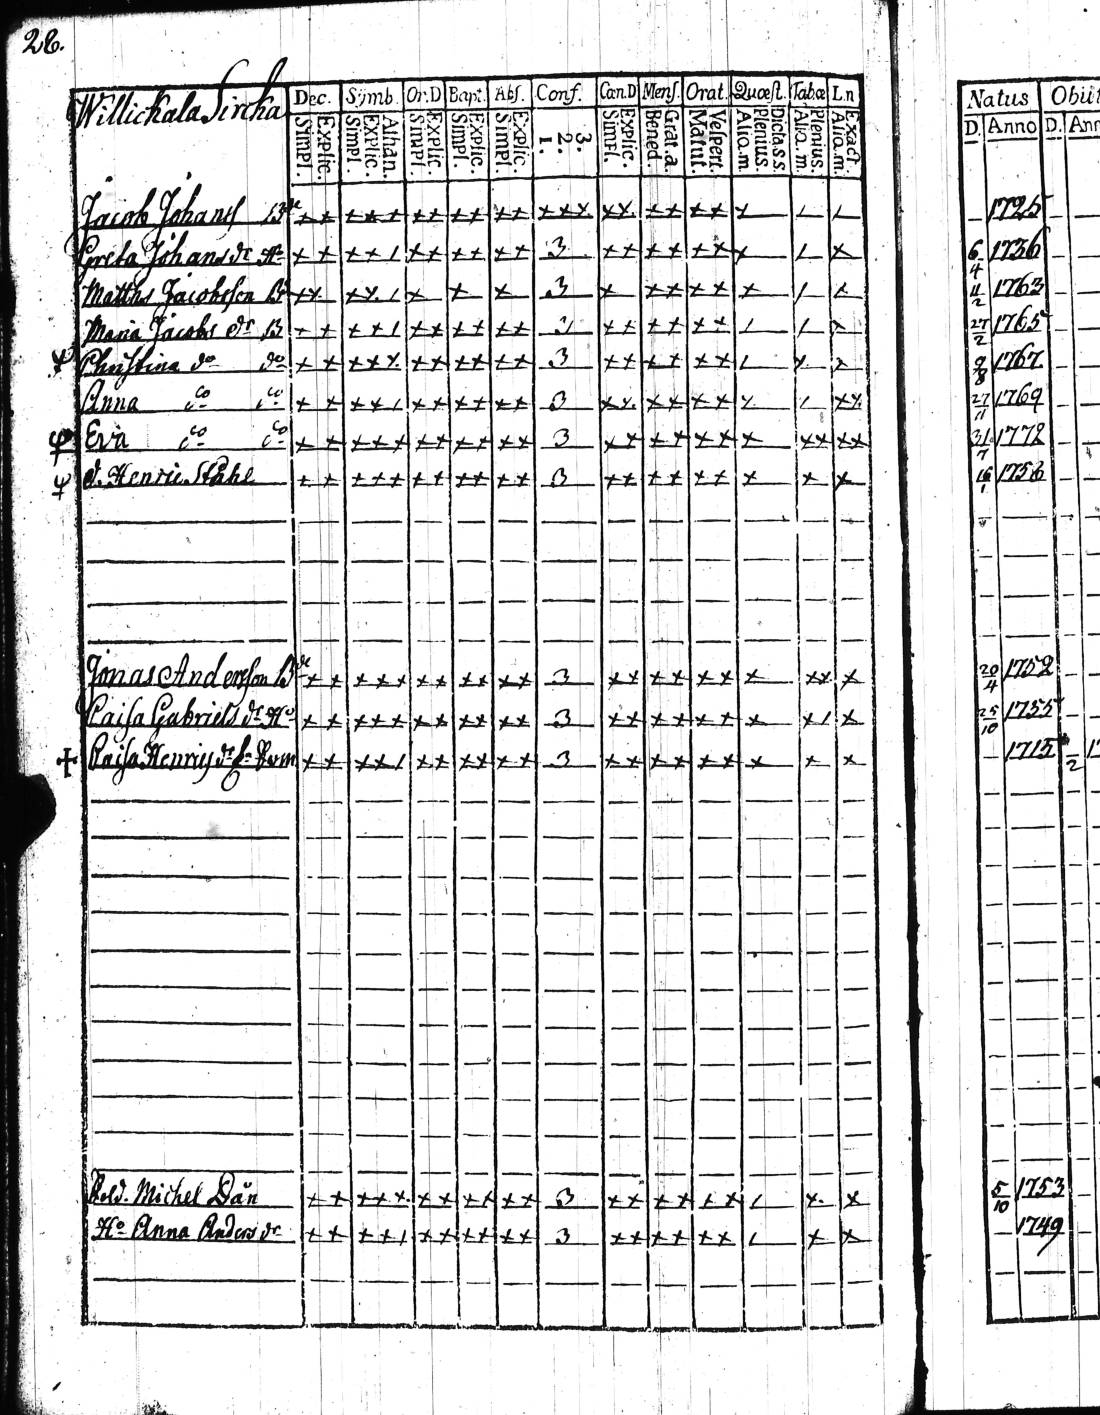 28.
Willickala Sircka Dec. Sijmb. Or.D Bapt. Abs. Conf. Can.D Mens. Orat. Quæst. Tabæ Ln Natus Obiit
Simpl. Explic. Simpl. Explic. Athan. Simpl. Explic. Simpl. Explic. Simpl. Explic. 1. 2. 3. Simpl. Explic. Bened. Grat.a. Matut. Vespert. Alio.m. Plenius. Dicta ss. Alio.m. Plenius. Alio.m. Exact. D. Anno D. Ann
Jacob Johans B de 1725
Greta Johans dr Ho 3 6/4 1736
Matths Jacobsson Br 3 11/2 1763
Maria Jacobs dr B 3 27/2 1765
Christina do do 3 9/8 1767
Anna do do 3 27/11 1769
Eva do do 3 31/7 1772
d. Henric Ståhl 3 16/1 1756
Jonas Andersson B de 3 20/4 1752
Caisa Gabriels dr Ho 3 25/10 1755
Caisa Henrics dr 3 1715 /2 1
Sold. Michel Dän 3 5/10 1753
Ho Anna Anders dr 3 1749